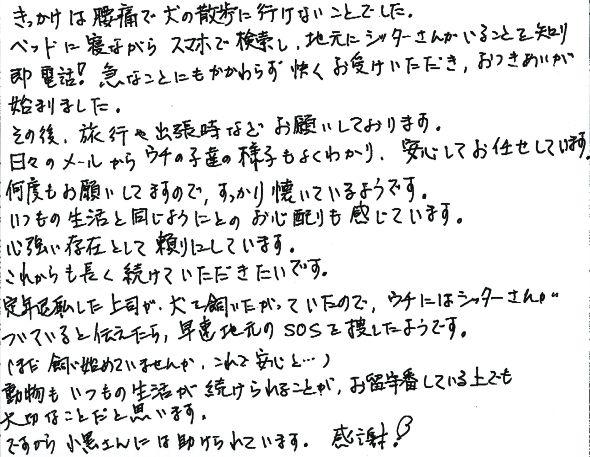 きっかけは腰痛で犬の散歩に行けないことでした。
ベッドに寝ながらスマホで検索し、地元にシッターさんがいることを知り
即電話!急なことにもかかわらず快くお受けいただき、おつきあいが
始まりました。
その後、旅行や出張時などお願いしております。
日々のメールからウチの子達の様子もよくわかり、安心してお任せしています。
何度もお願いしてますので、すっかり懐いているようです。
いつもの生活と同じようにとのお心配りも感じています。
心強い存在として頼りにしています。
これからも長く続けていただきたいです。
定年退職した上司が、犬を飼いたがっていたので、ウチにはシッターさんが
ついていると伝えたら、早速地元のSOSを捜したようです。
(まだ飼い始めていませんが、これで安心と…)
動物もいつもの生活が続けられることが、お留守番している上でも
大切なことだと思います。
ですから小黒さんには助けられています。感謝!